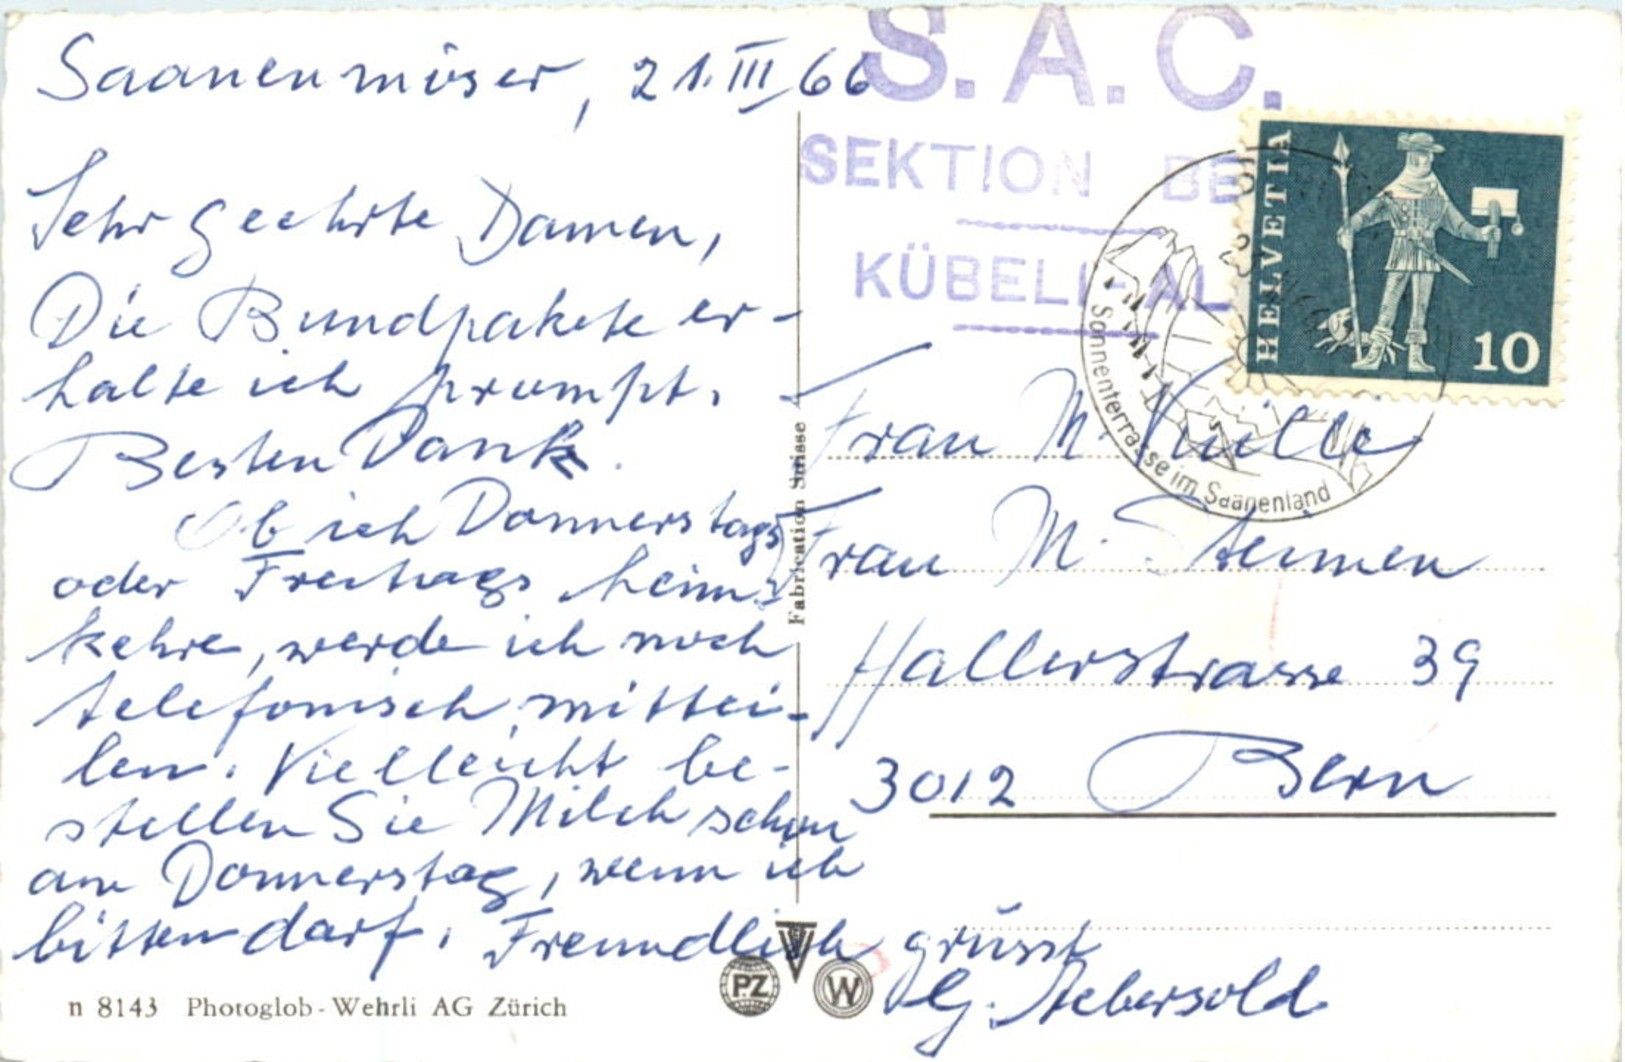 Saanenmöser, 21. III 66
Sehr geehrte Damen,
Die Bundpakete er-
halte ich prompt.
Besten Dank.
Ob ich Donnerstags
oder Freitags heim-
kehre, werde ich noch
telefonisch mittei-
len. Vielleicht be-
stellen Sie Milch schon
am Donnerstag, wenn ich
bitten darf. Freundlich grüsst
G. Aebersold
n 8143 Photoglob-Wehrli AG Zürich
Fabrication Suisse
PZ
W
S.A.C.
SEKTION BE
KÜBELI-AL
HELVETIA
10
Sonnenterrasse im Saanenland
Frau M. Vuille
Frau M.
Hallerstrasse 39
3012 Bern